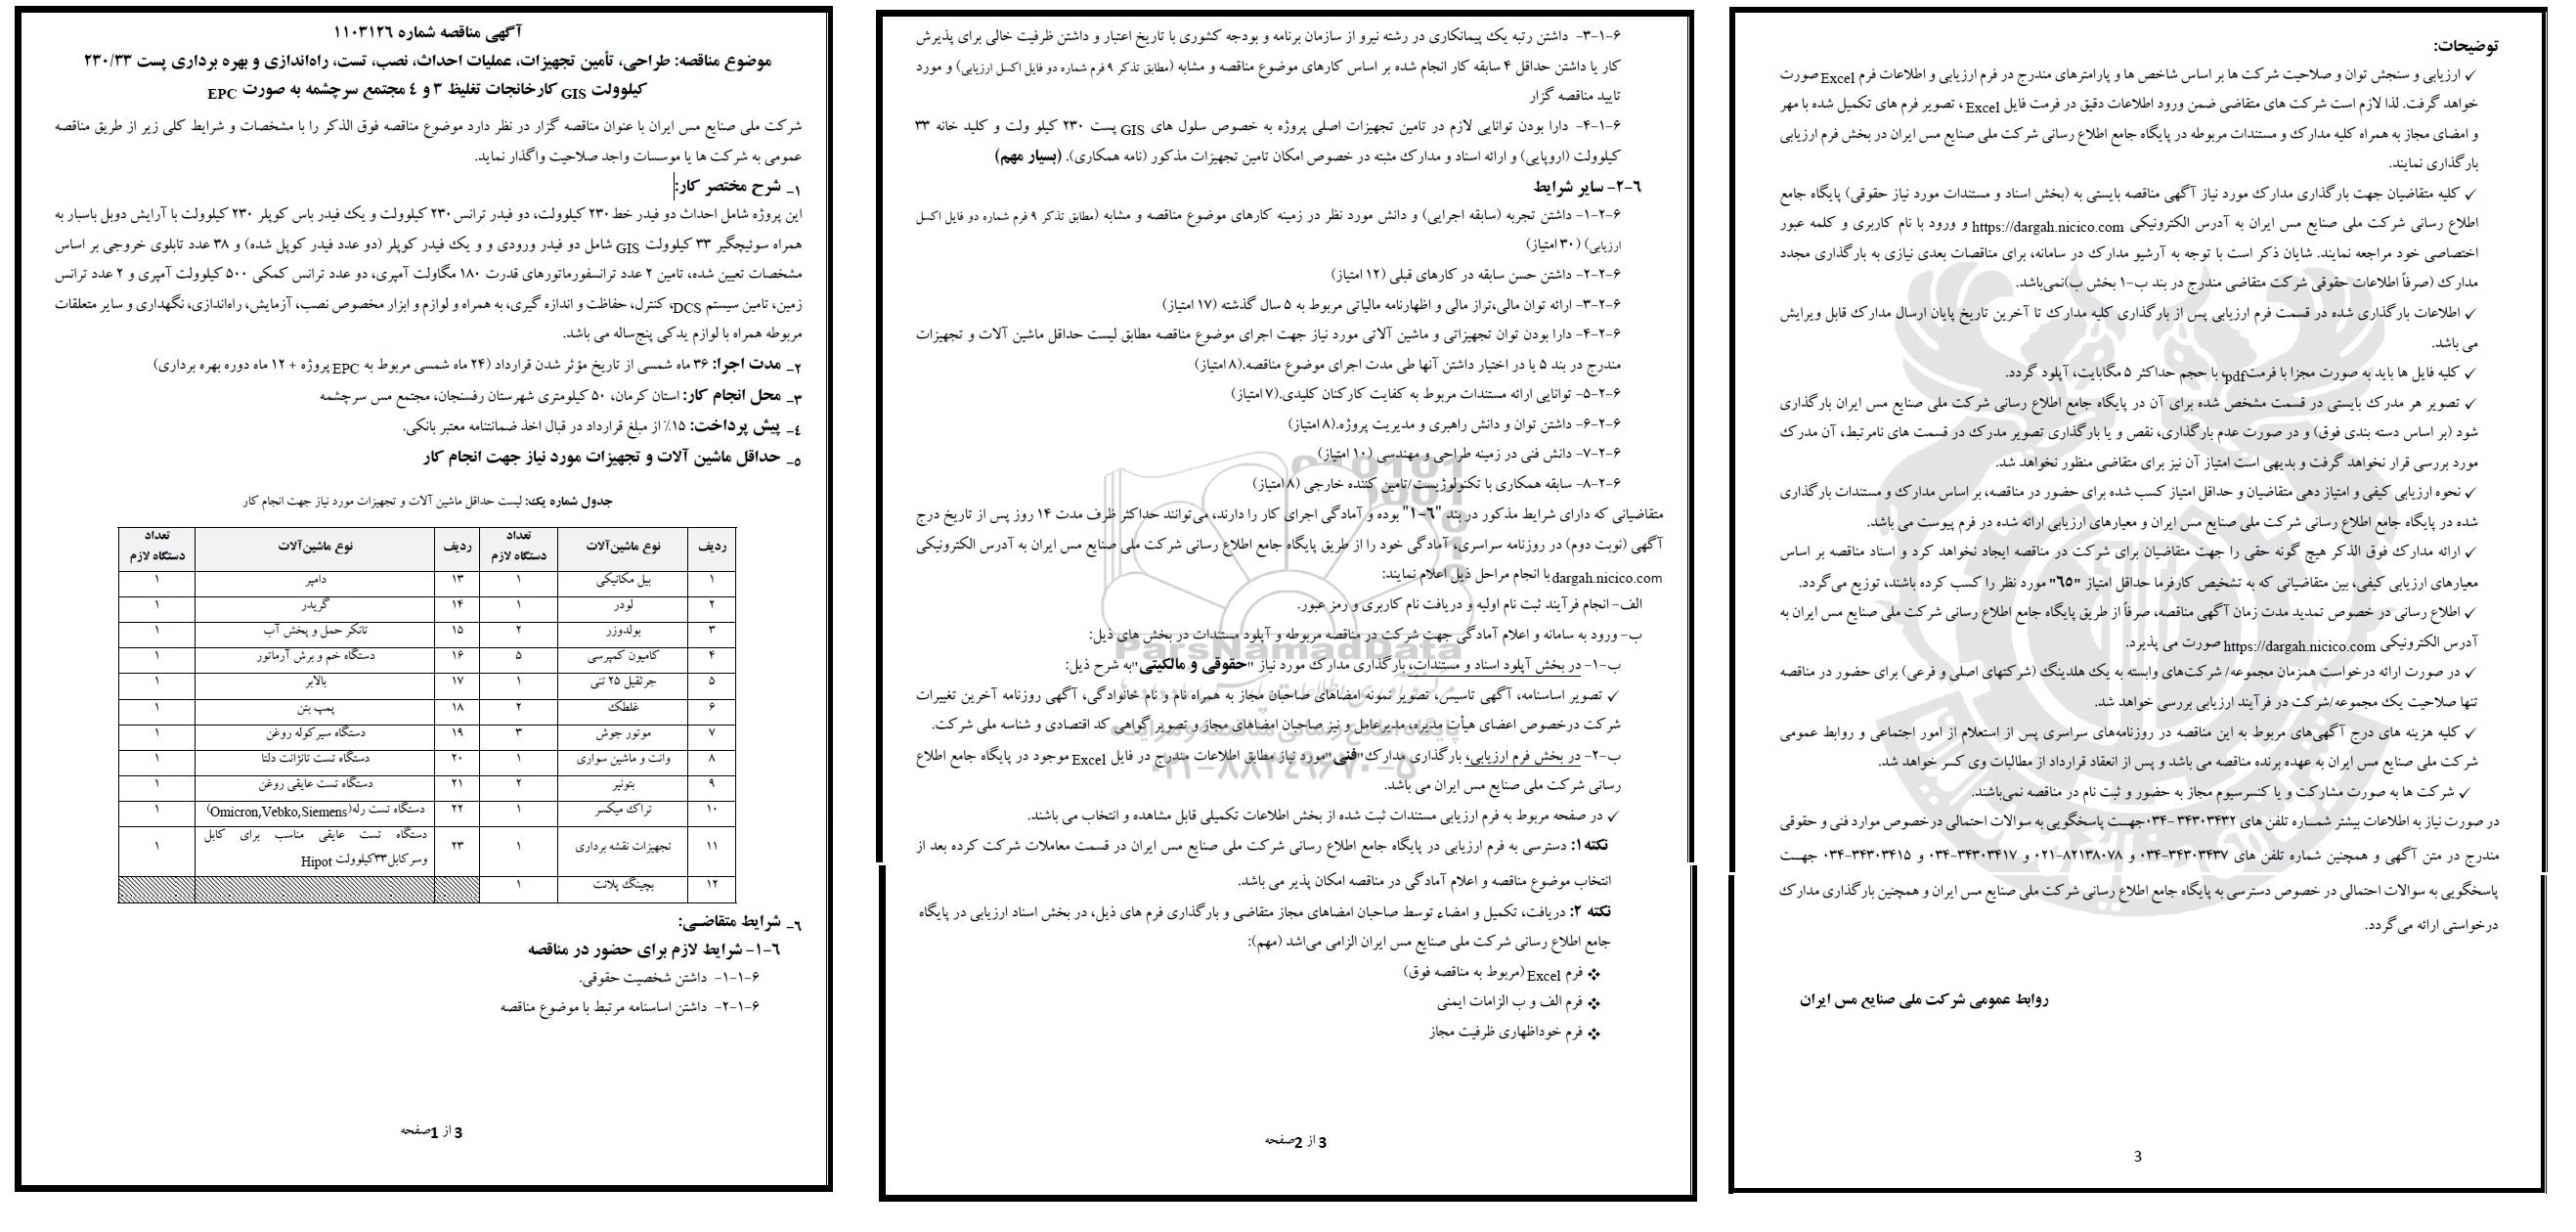 آگهی مناقصه شماره ۱۱۰۳۱۲۶
موضوع مناقصه: طراحی، تأمین تجهیزات، عملیات احداث، نصب، تست، راه‌اندازی و بهره برداری پست ۲۳۰/۳۳
کیلوولت GIS کارخانجات تغلیظ ۳ و ٤ مجتمع سرچشمه به صورت EPC
شرکت ملی صنایع مس ایران با عنوان مناقصه گزار در نظر دارد موضوع مناقصه فوق الذکر را با مشخصات و شرایط کلی زیر از طریق مناقصه
عمومی به شرکت ها یا موسسات واجد صلاحیت واگذار نماید.
۱- شرح مختصر کار:
این پروژه شامل احداث دو فیدر خط ۲۳۰ کیلوولت، دو فیدر ترانس ۲۳۰ کیلوولت و یک فیدر باس کوپلر ۲۳۰ کیلوولت با آرایش دوبل باسبار به
همراه سوئیچگیر ۳۳ کیلوولت GIS شامل دو فیدر ورودی و و یک فیدر کوپلر (دو عدد فیدر کوپل شده) و ۳۸ عدد تابلوی خروجی بر اساس
مشخصات تعیین شده، تامین ۲ عدد ترانسفورماتورهای قدرت ۱۸۰ مگاولت آمپری، دو عدد ترانس کمکی ۵۰۰ کیلوولت آمپری و ۲ عدد ترانس
زمین، تامین سیستم DCS، کنترل، حفاظت و اندازه گیری، به همراه و لوازم و ابزار مخصوص نصب، آزمایش، راه‌اندازی، نگهداری و سایر متعلقات
مربوطه همراه با لوازم یدکی پنج‌ساله می باشد.
۲- مدت اجرا: ۳۶ ماه شمسی از تاریخ مؤثر شدن قرارداد (۲۴ ماه شمسی مربوط به EPC پروژه + ۱۲ ماه دوره بهره برداری)
۳- محل انجام کار: استان کرمان، ۵۰ کیلومتری شهرستان رفسنجان، مجتمع مس سرچشمه
٤- پیش پرداخت: ۱۵٪ از مبلغ قرارداد در قبال اخذ ضمانتنامه معتبر بانکی.
۵- حداقل ماشین آلات و تجهیزات مورد نیاز جهت انجام کار
جدول شماره یک: لیست حداقل ماشین آلات و تجهیزات مورد نیاز جهت انجام کار
ردیف نوع ماشین‌آلات تعداد دستگاه لازم ردیف نوع ماشین‌آلات تعداد دستگاه لازم
۱ بیل مکانیکی ۱ ۱۳ دامپر ۱
۲ لودر ۱ ۱۴ گریدر ۱
۳ بولدوزر ۲ ۱۵ تانکر حمل و پخش آب ۱
۴ کامیون کمپرسی ۵ ۱۶ دستگاه خم و برش آرماتور ۱
۵ جرثقیل ۲۵ تنی ۱ ۱۷ بالابر ۱
۶ غلطک ۲ ۱۸ پمپ بتن ۱
۷ موتور جوش ۳ ۱۹ دستگاه سیرکوله روغن ۱
۸ وانت و ماشین سواری ۱ ۲۰ دستگاه تست تانژانت دلتا ۱
۹ بتونیر ۲ ۲۱ دستگاه تست عایقی روغن ۱
۱۰ تراک میکسر ۱ ۲۲ دستگاه تست رله(Omicron,Vebko,Siemens) ۱
۱۱ تجهیزات نقشه برداری ۱ ۲۳ دستگاه تست عایقی مناسب برای کابل وسرکابل۳۳کیلوولت Hipot ۱
۱۲ بچینگ پلانت ۱
٦- شرایط متقاضی:
٦-۱- شرایط لازم برای حضور در مناقصه
۶-۱-۱- داشتن شخصیت حقوقی.
۶-۱-۲- داشتن اساسنامه مرتبط با موضوع مناقصه
صفحه1 از 3
۶-۱-۳- داشتن رتبه یک پیمانکاری در رشته نیرو از سازمان برنامه و بودجه کشوری با تاریخ اعتبار و داشتن ظرفیت خالی برای پذیرش
کار یا داشتن حداقل ۴ سابقه کار انجام شده بر اساس کارهای موضوع مناقصه و مشابه (مطابق تذکر ۹ فرم شماره دو فایل اکسل ارزیابی) و مورد
تایید مناقصه گزار
۶-۱-۴- دارا بودن توانایی لازم در تامین تجهیزات اصلی پروژه به خصوص سلول های GIS پست ۲۳۰ کیلو ولت و کلید خانه ۳۳
کیلوولت (اروپایی) و ارائه اسناد و مدارک مثبته در خصوص امکان تامین تجهیزات مذکور (نامه همکاری). (بسیار مهم)
٦-۲- سایر شرایط
۶-۲-۱- داشتن تجربه (سابقه اجرایی) و دانش مورد نظر در زمینه کارهای موضوع مناقصه و مشابه (مطابق تذکر ۹ فرم شماره دو فایل اکسل
ارزیابی) (۳۰ امتیاز)
۶-۲-۲- داشتن حسن سابقه در کارهای قبلی (۱۲ امتیاز)
۶-۲-۳- ارائه توان مالی،تراز مالی و اظهارنامه مالیاتی مربوط به ۵ سال گذشته (۱۷ امتیاز)
۶-۲-۴- دارا بودن توان تجهیزاتی و ماشین آلاتی مورد نیاز جهت اجرای موضوع مناقصه مطابق لیست حداقل ماشین آلات و تجهیزات
مندرج در بند ۵ یا در اختیار داشتن آنها طی مدت اجرای موضوع مناقصه.(۸ امتیاز)
۶-۲-۵- توانایی ارائه مستندات مربوط به کفایت کارکنان کلیدی.(۷ امتیاز)
۶-۲-۶- داشتن توان و دانش راهبری و مدیریت پروژه.(۸ امتیاز)
۶-۲-۷- دانش فنی در زمینه طراحی و مهندسی (۱۰ امتیاز)
۶-۲-۸- سابقه همکاری با تکنولوژیست/تامین کننده خارجی (۸ امتیاز)
متقاضیانی که دارای شرایط مذکور در بند "٦-۱" بوده و آمادگی اجرای کار را دارند، می‌توانند حداکثر ظرف مدت ۱۴ روز پس از تاریخ درج
آگهی (نوبت دوم) در روزنامه سراسری، آمادگی خود را از طریق پایگاه جامع اطلاع رسانی شرکت ملی صنایع مس ایران به آدرس الکترونیکی
dargah.nicico.com با انجام مراحل ذیل اعلام نمایند:
الف- انجام فرآیند ثبت نام اولیه و دریافت نام کاربری و رمز عبور.
ب- ورود به سامانه و اعلام آمادگی جهت شرکت در مناقصه مربوطه و آپلود مستندات در بخش های ذیل:
ب-۱- در بخش آپلود اسناد و مستندات، بارگذاری مدارک مورد نیاز "حقوقی و مالکیتی" به شرح ذیل:
✓ تصویر اساسنامه، آگهی تاسیس، تصویر نمونه امضاهای صاحبان مجاز به همراه نام و نام خانوادگی، آگهی روزنامه آخرین تغییرات
شرکت درخصوص اعضای هیأت مدیره، مدیرعامل و نیز صاحبان امضاهای مجاز و تصویر گواهی کد اقتصادی و شناسه ملی شرکت.
ب-۲- در بخش فرم ارزیابی، بارگذاری مدارک"فنی"مورد نیاز مطابق اطلاعات مندرج در فایل Excel موجود در پایگاه جامع اطلاع
رسانی شرکت ملی صنایع مس ایران می باشد.
✓ در صفحه مربوط به فرم ارزیابی مستندات ثبت شده از بخش اطلاعات تکمیلی قابل مشاهده و انتخاب می باشند.
نکته ۱: دسترسی به فرم ارزیابی در پایگاه جامع اطلاع رسانی شرکت ملی صنایع مس ایران در قسمت معاملات شرکت کرده بعد از
انتخاب موضوع مناقصه و اعلام آمادگی در مناقصه امکان پذیر می باشد.
نکته ۲: دریافت، تکمیل و امضاء توسط صاحبان امضاهای مجاز متقاضی و بارگذاری فرم های ذیل، در بخش اسناد ارزیابی در پایگاه
جامع اطلاع رسانی شرکت ملی صنایع مس ایران الزامی می‌باشد (مهم):
❖ فرم Excel (مربوط به مناقصه فوق)
❖ فرم الف و ب الزامات ایمنی
❖ فرم خوداظهاری ظرفیت مجاز
ParsNamadData
پایگاه اطلاع رسانی مناقصه و مزایده
۰۲۱-۸۸۳۴۹۶۷۰-۵
صفحه2 از 3
توضیحات:
✓ ارزیابی و سنجش توان و صلاحیت شرکت ها بر اساس شاخص ها و پارامترهای مندرج در فرم ارزیابی و اطلاعات فرم Excel صورت
خواهد گرفت. لذا لازم است شرکت های متقاضی ضمن ورود اطلاعات دقیق در فرمت فایل Excel، تصویر فرم های تکمیل شده با مهر
و امضای مجاز به همراه کلیه مدارک و مستندات مربوطه در پایگاه جامع اطلاع رسانی شرکت ملی صنایع مس ایران در بخش فرم ارزیابی
بارگذاری نمایند.
✓ کلیه متقاضیان جهت بارگذاری مدارک مورد نیاز آگهی مناقصه بایستی به (بخش اسناد و مستندات مورد نیاز حقوقی) پایگاه جامع
اطلاع رسانی شرکت ملی صنایع مس ایران به آدرس الکترونیکی https://dargah.nicico.com و ورود با نام کاربری و کلمه عبور
اختصاصی خود مراجعه نمایند. شایان ذکر است با توجه به آرشیو مدارک در سامانه، برای مناقصات بعدی نیازی به بارگذاری مجدد
مدارک (صرفاً اطلاعات حقوقی شرکت متقاضی مندرج در بند ب-۱ بخش ب)نمی‌باشد.
✓ اطلاعات بارگذاری شده در قسمت فرم ارزیابی پس از بارگذاری کلیه مدارک تا آخرین تاریخ پایان ارسال مدارک قابل ویرایش
می باشد.
✓ کلیه فایل ها باید به صورت مجزا با فرمت pdf، با حجم حداکثر ۵ مگابایت، آپلود گردد.
✓ تصویر هر مدرک بایستی در قسمت مشخص شده برای آن در پایگاه جامع اطلاع رسانی شرکت ملی صنایع مس ایران بارگذاری
شود (بر اساس دسته بندی فوق) و در صورت عدم بارگذاری، نقص و یا بارگذاری تصویر مدرک در قسمت های نامرتبط، آن مدرک
مورد بررسی قرار نخواهد گرفت و بدیهی است امتیاز آن نیز برای متقاضی منظور نخواهد شد.
✓ نحوه ارزیابی کیفی و امتیاز دهی متقاضیان و حداقل امتیاز کسب شده برای حضور در مناقصه، بر اساس مدارک و مستندات بارگذاری
شده در پایگاه جامع اطلاع رسانی شرکت ملی صنایع مس ایران و معیارهای ارزیابی ارائه شده در فرم پیوست می باشد.
✓ ارائه مدارک فوق الذکر هیچ گونه حقی را جهت متقاضیان برای شرکت در مناقصه ایجاد نخواهد کرد و اسناد مناقصه بر اساس
معیارهای ارزیابی کیفی، بین متقاضیانی که به تشخیص کارفرما حداقل امتیاز "٦۵" مورد نظر را کسب کرده باشند، توزیع می‌گردد.
✓ اطلاع رسانی در خصوص تمدید مدت زمان آگهی مناقصه، صرفاً از طریق پایگاه جامع اطلاع رسانی شرکت ملی صنایع مس ایران به
آدرس الکترونیکی https://dargah.nicico.com صورت می پذیرد.
✓ در صورت ارائه درخواست همزمان مجموعه/ شرکت‌های وابسته به یک هلدینگ (شرکتهای اصلی و فرعی) برای حضور در مناقصه
تنها صلاحیت یک مجموعه/شرکت در فرآیند ارزیابی بررسی خواهد شد.
✓ کلیه هزینه های درج آگهی‌های مربوط به این مناقصه در روزنامه‌های سراسری پس از استعلام از امور اجتماعی و روابط عمومی
شرکت ملی صنایع مس ایران به عهده برنده مناقصه می باشد و پس از انعقاد قرارداد از مطالبات وی کسر خواهد شد.
✓ شرکت ها به صورت مشارکت و یا کنسرسیوم مجاز به حضور و ثبت نام در مناقصه نمی‌باشند.
در صورت نیاز به اطلاعات بیشتر شمـاره تلفن های ۳۴۳۰۳۴۳۲-۰۳۴جهـت پاسخگویی به سوالات احتمالی درخصوص موارد فنی و حقوقی
مندرج در متن آگهی و همچنین شماره تلفن های ۳۴۳۰۳۴۳۷-۰۳۴ و ۸۲۱۳۸۰۷۸-۰۲۱ و ۳۴۳۰۳۴۱۷-۰۳۴ و ۳۴۳۰۳۴۱۵-۰۳۴ جهـت
پاسخگویی به سوالات احتمالی در خصوص دسترسی به پایگاه جامع اطلاع رسانی شرکت ملی صنایع مس ایران و همچنین بارگذاری مدارک
درخواستی ارائه می‌گردد.
روابط عمومی شرکت ملی صنایع مس ایران
3